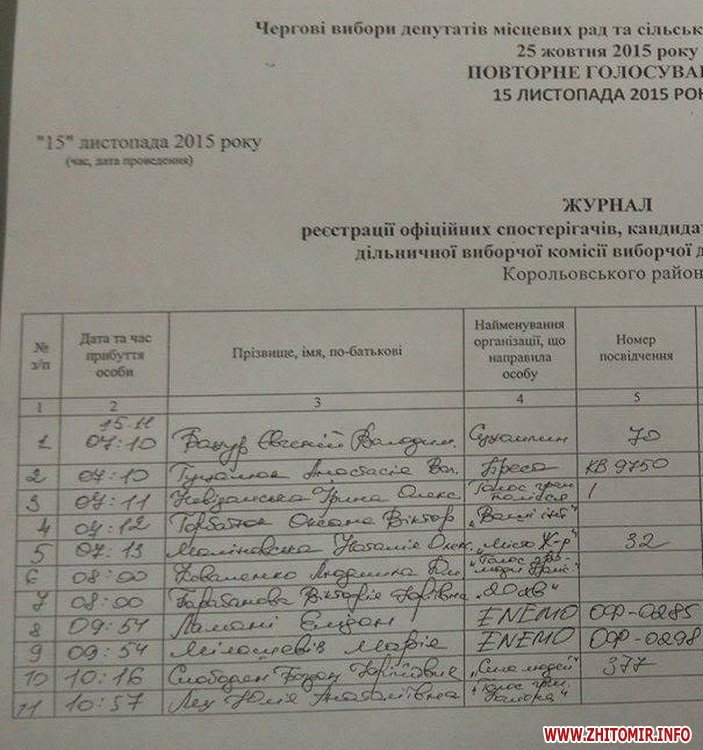 Чергові вибори депутатів місцевих рад та сільськ
25 жовтня 2015 року
ПОВТОРНЕ ГОЛОСУВА
15 ЛИСТОПАДА 2015 РО
"15" листопада 2015 року
(час, дата проведення)
ЖУРНАЛ
реєстрації офіційних спостерігачів, кандидат
дільничної виборчої комісії виборчої д
Корольовського район
№ з/п Дата та час прибуття особи Прізвище, імя, по-батькові Найменування організації, що направила особу Номер посвідчення
1 2 3 4 5
15.11
1 07:10 Євгеній Володим. 70
2 07:10 Анастасія Вол. Преса КВ 9750
3 07:11 Ірина Олекс. Голос
4 07:12 Горбатюк Оксана Віктор
5 07:13 Маліновська Наталія Олек. "Місто Ж-р" 32
6 08:00 Коваленко Людмила "Голос
7 08:00 Барабанова Вікторія Юріївна "20 хв"
8 09:54 ENEMO ОФ-0285
9 09:54 Мілошевіч Марія ENEMO ОФ-0298
10 10:16 Слободен Богдан Юрійович "Сила людей" 377
11 10:57 Лец Юлія Анатоліївна "Голос
WWW.ZHITOMIR.INFO